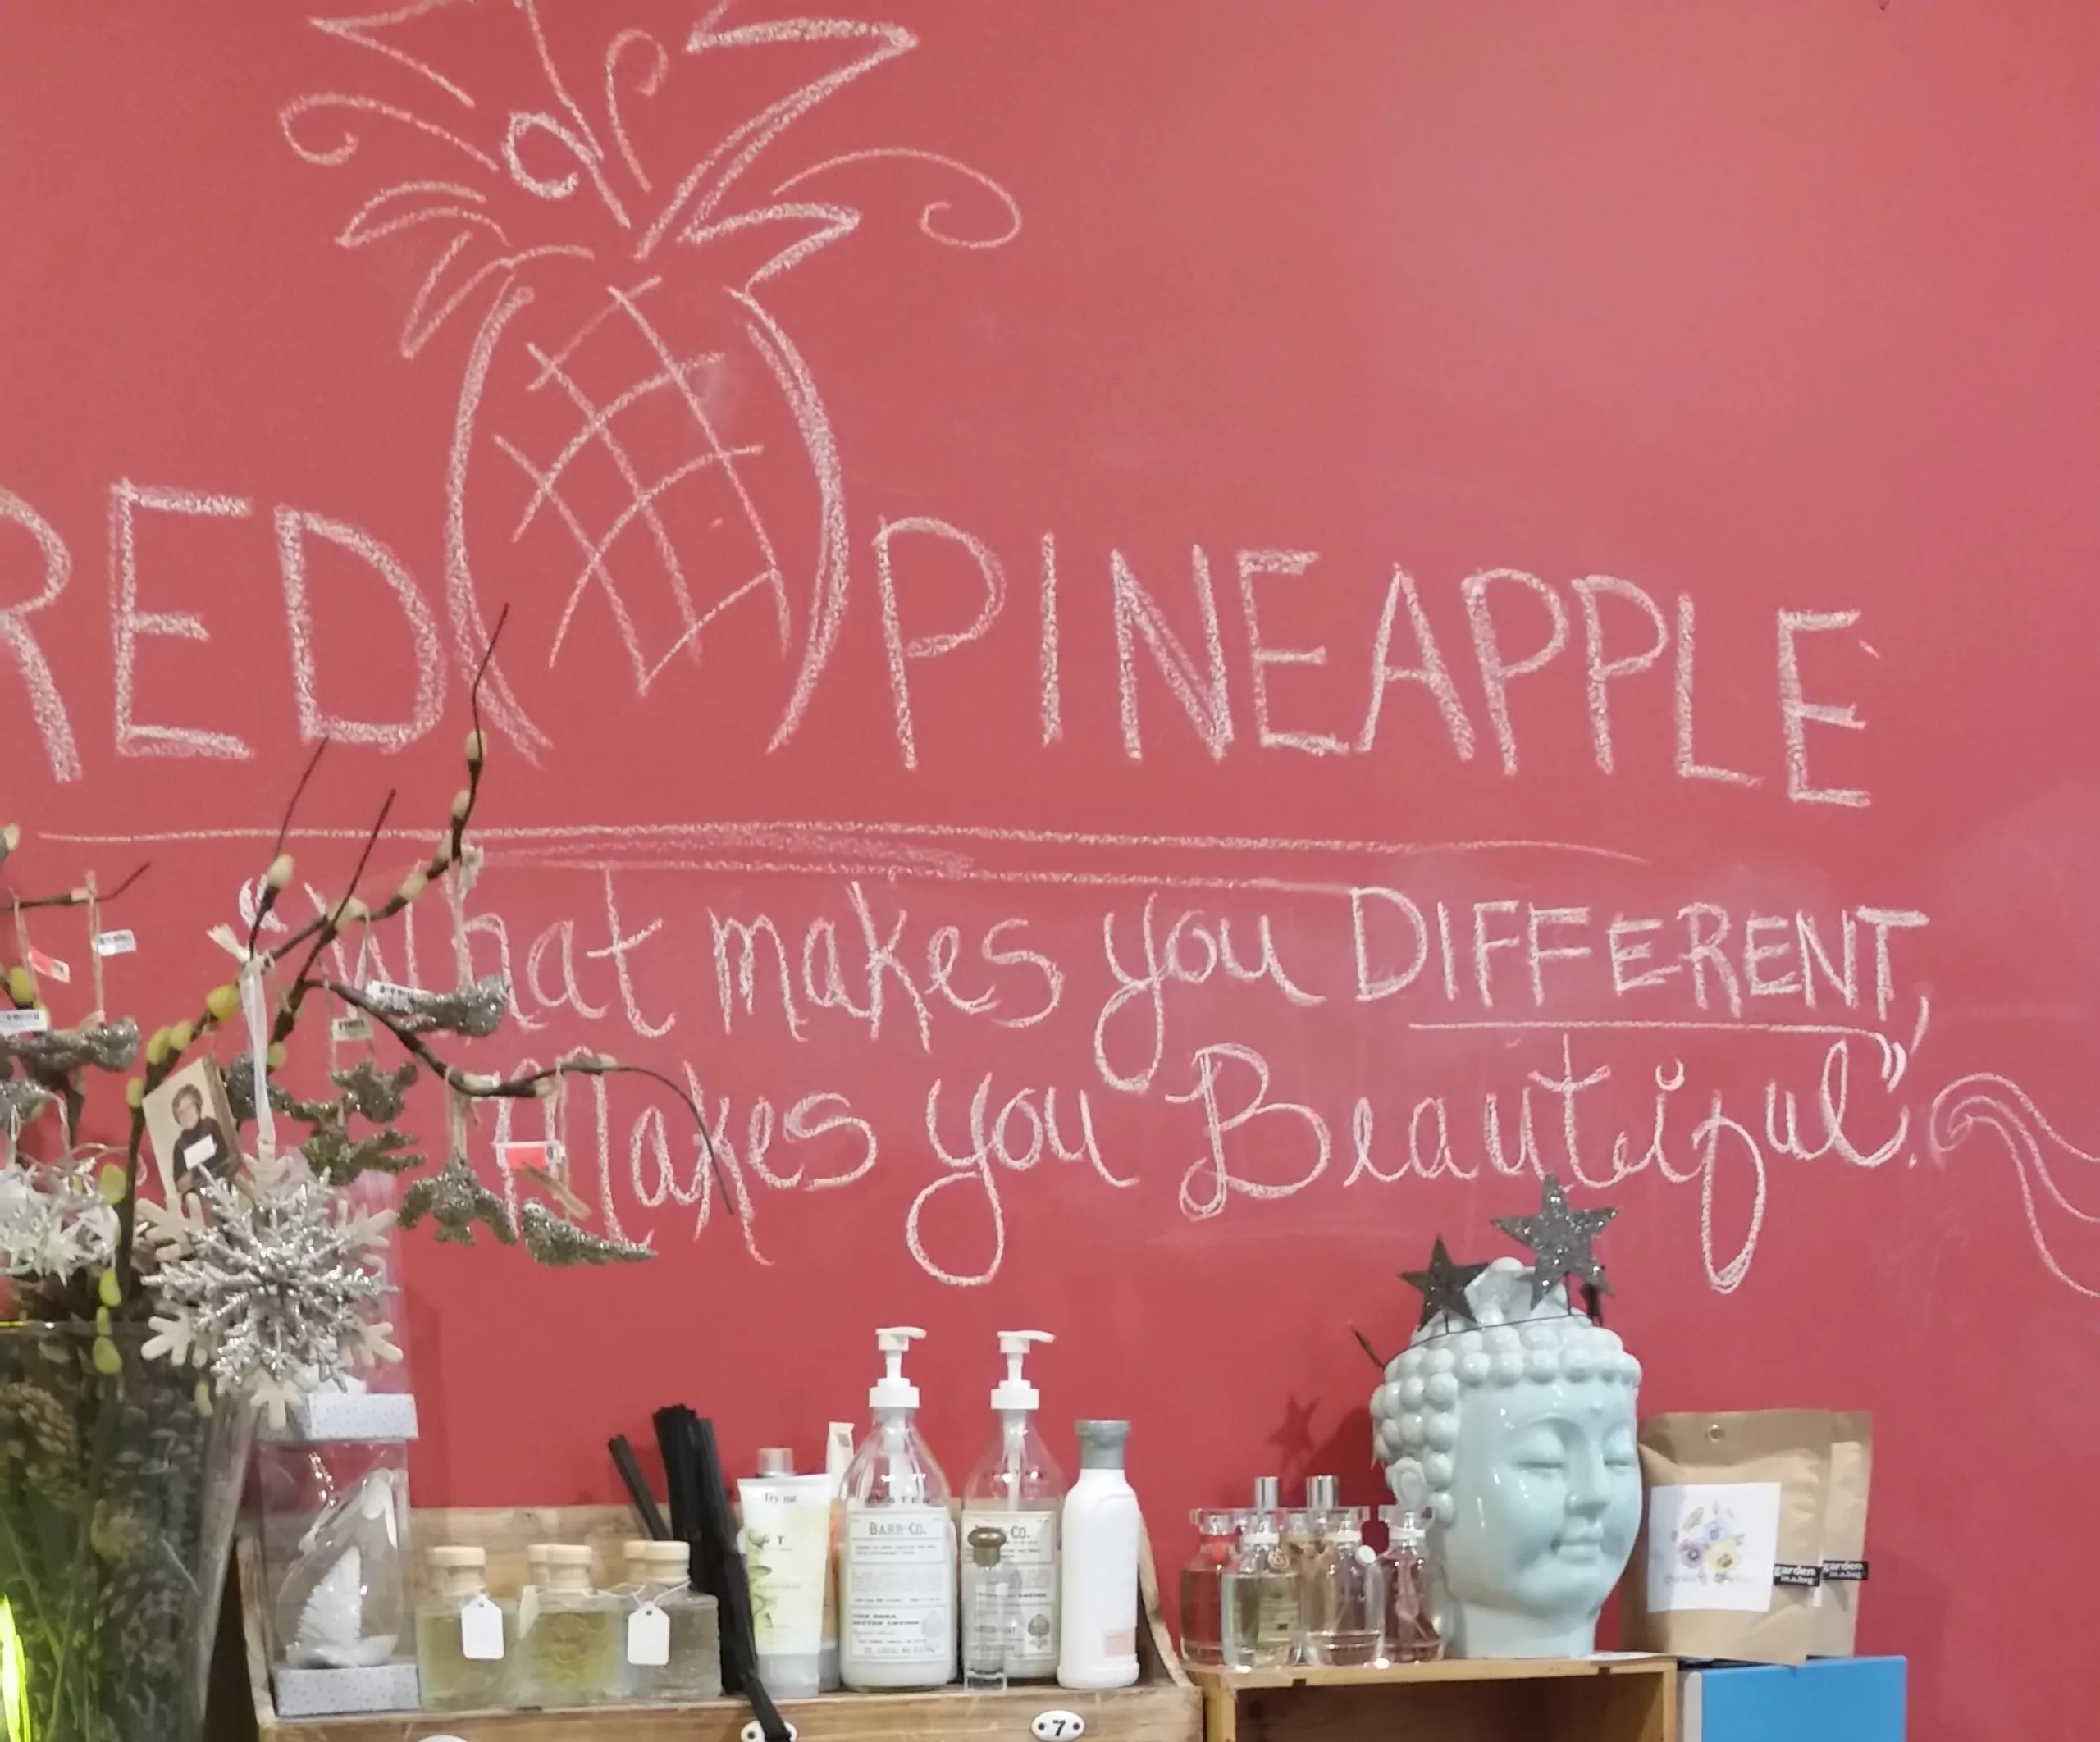 RED PINEAPPLE
"What makes you DIFFERENT,
Makes you Beautiful".
Try me
BARR-CO.
-CO.
garden
in a bag
garden
in a bag
7